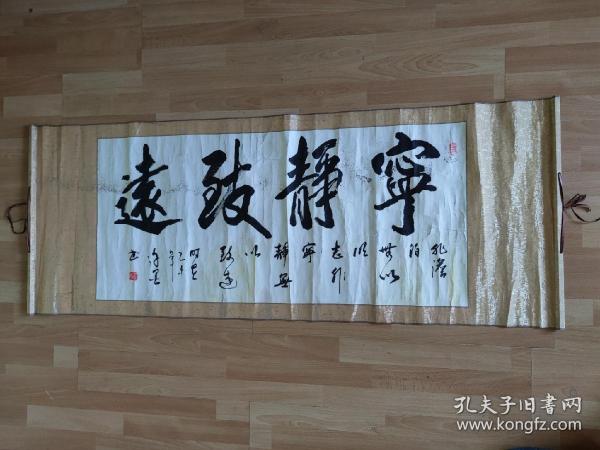 寧靜致遠
非澹
泊
無以
明
志非
寧
靜無
以
致遠
書
孔夫子旧书网
www.kongfz.com